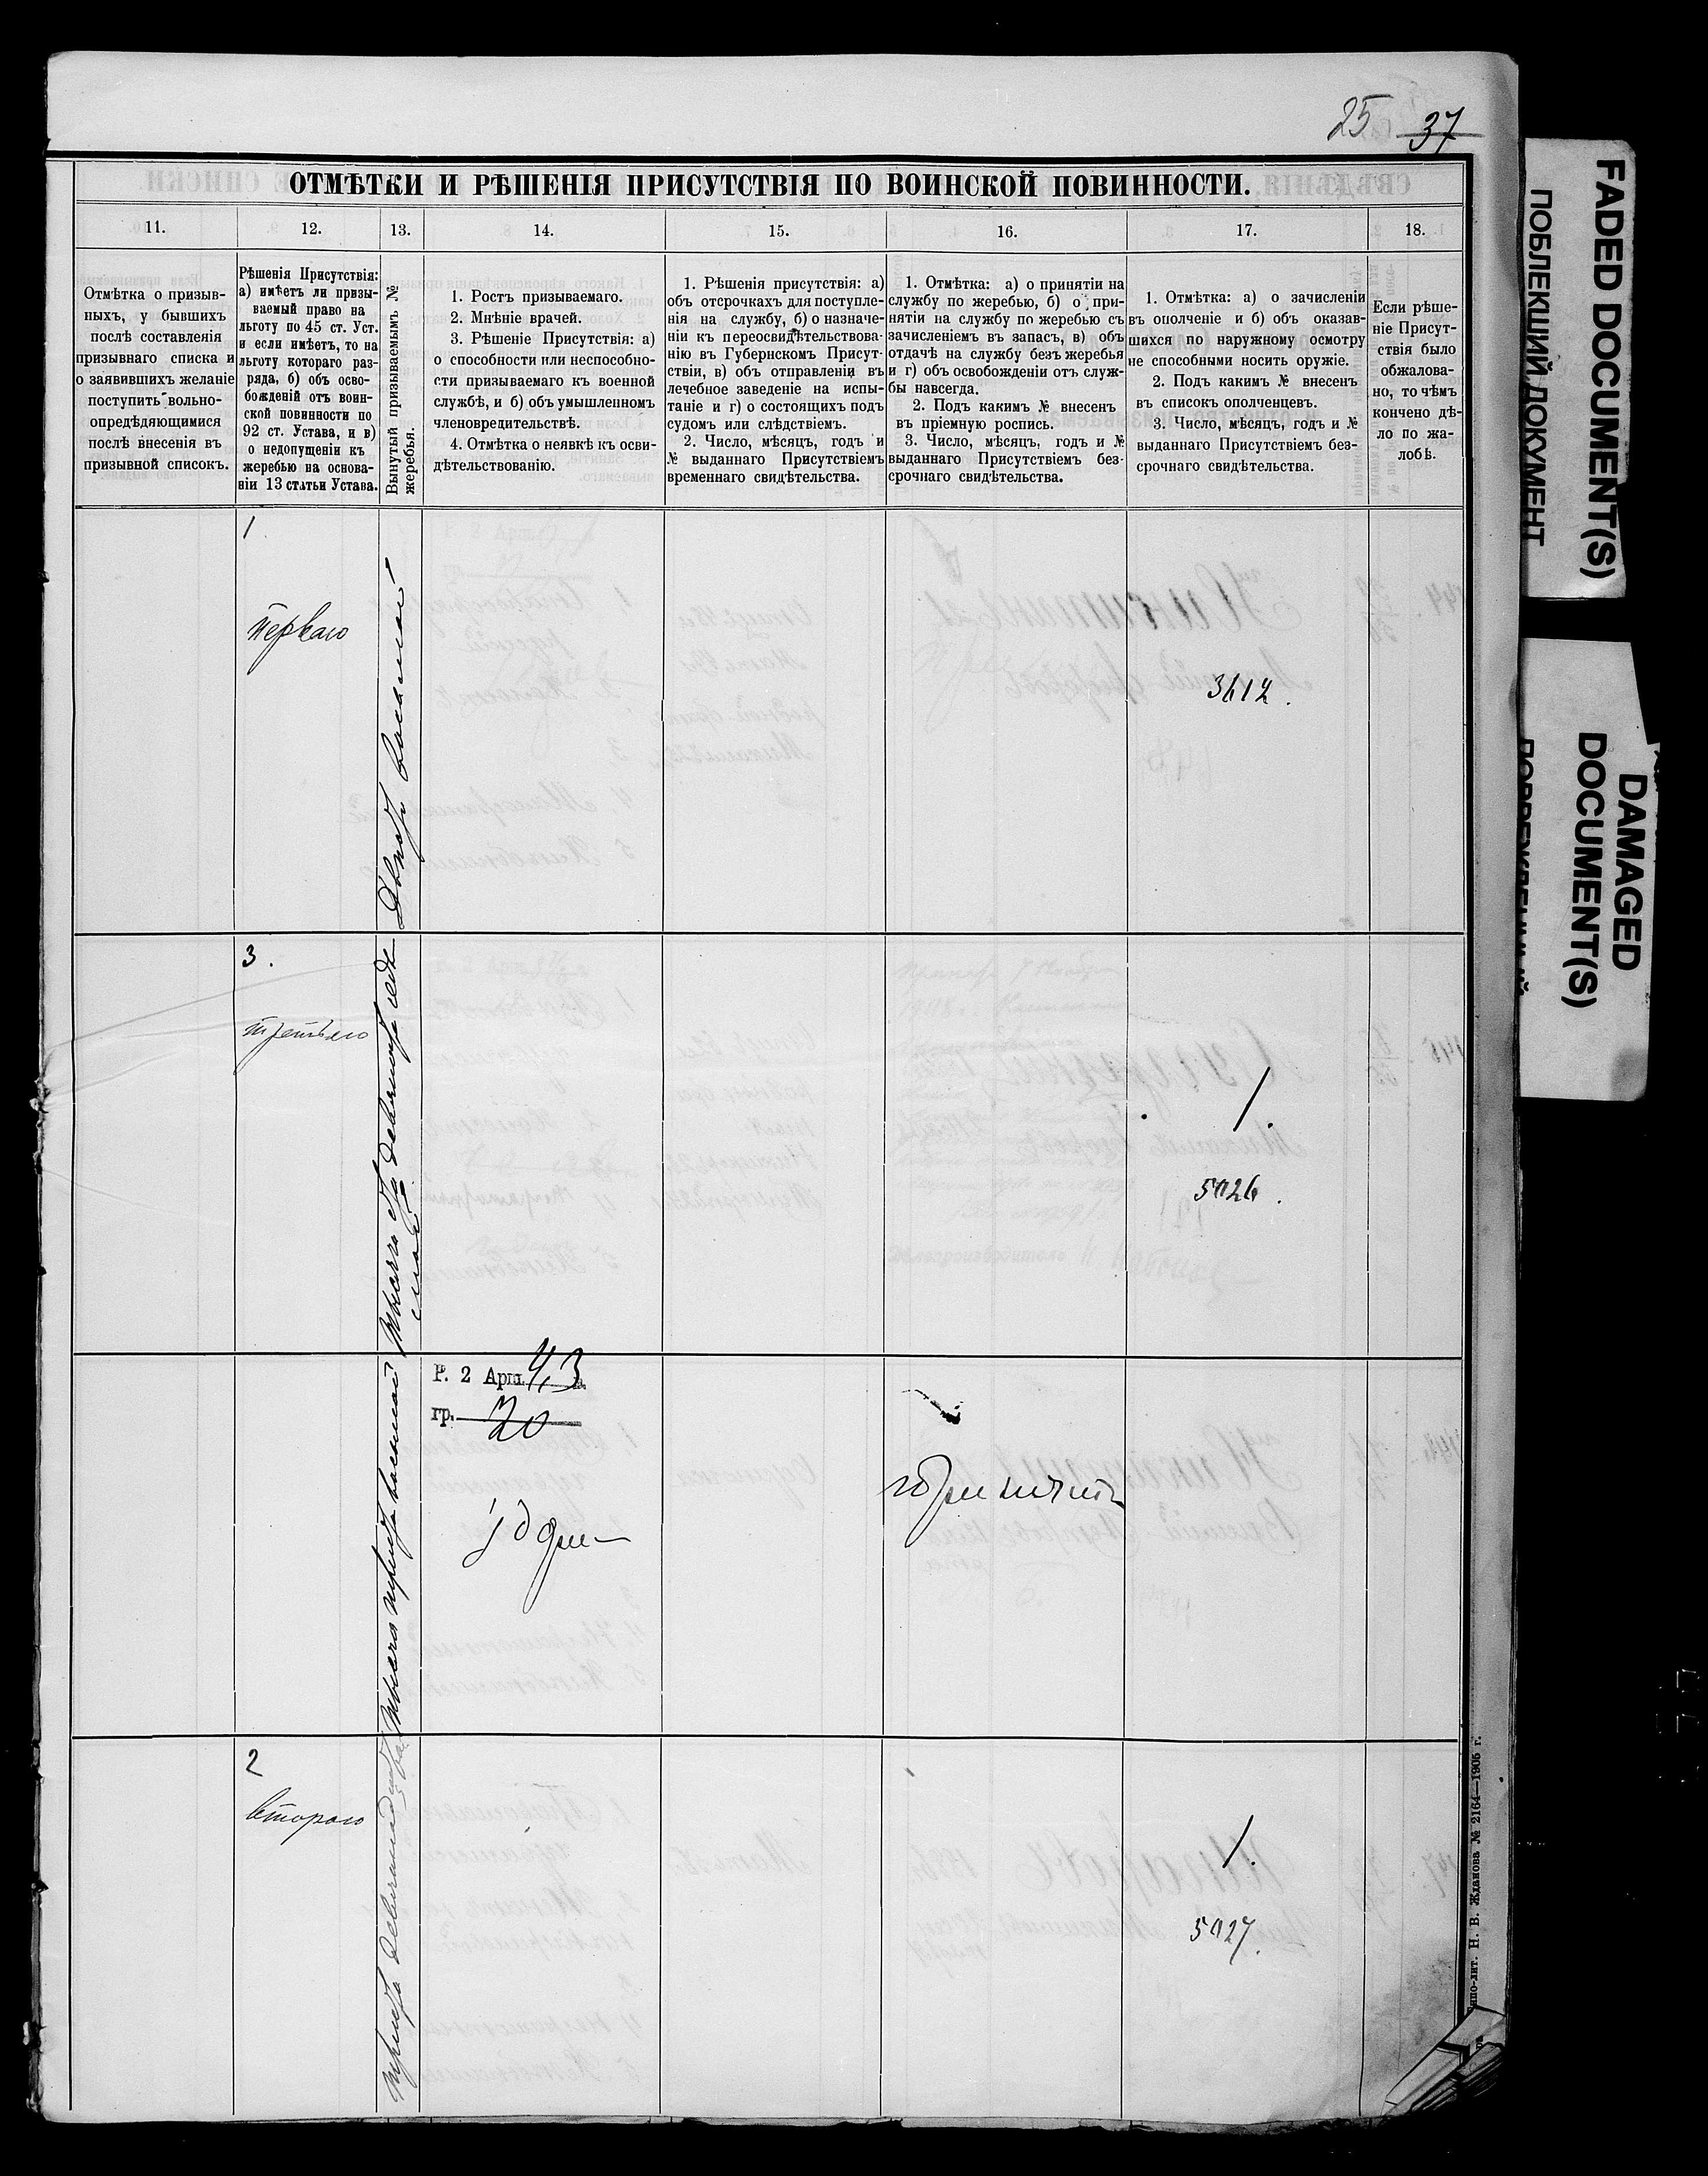 25 37
ОТМѢТКИ И РѢШЕНІЯ ПРИСУТСТВІЯ ПО ВОИНСКОЙ ПОВИННОСТИ.
11.
12.
13.
14.
15.
16.
17.
18.
Отмѣтка о призыв-
ныхъ, у бывшихъ
послѣ составленія
призывнаго списка и
о заявившихъ желаніе
поступить вольно-
опредѣдяющимися
послѣ внесенія въ
призывной списокъ.
Рѣшенія Присутствія:
а) имѣетъ ли призы-
ваемый право на
льготу по 45 ст. Уст.
и если имѣетъ, то на
льготу котораго раз-
ряда, б) объ осво-
божденій отъ воин-
ской повинности по
92 ст. Устава, и в)
о недопущеніи къ
жеребью на основа-
ніи 13 статьи Устава.
Вынутый призываемымъ №
жеребья.
1. Ростъ призываемаго.
2. Мнѣніе врачей.
3. Рѣшеніе Присутствія: а)
о способности или неспособно-
сти призываемаго къ военной
службѣ, и б) объ умышленномъ
членовредительствѣ.
4. Отмѣтка о неявкѣ къ осви-
дѣтельствованію.
1. Рѣшенія присутствія: а)
объ отсрочкахъ для поступле-
нія на службу, б) о назначе-
ніи къ переосвидѣтельствова-
нію въ Губернскомъ Присут-
ствіи, в) объ отправленіи въ
лечебное заведеніе на испы-
таніе и г) о состоящихъ подъ
судомъ или слѣдствіемъ.
2. Число, мѣсяцъ, годъ и
№ выданнаго Присутствіемъ
временнаго свидѣтельства.
1. Отмѣтка: а) о принятіи на
службу по жеребью, б) о при-
нятіи на службу по жеребью съ
зачисленіемъ въ запасъ, в) объ
отдачѣ на службу безъ жеребья
и г) объ освобожденіи отъ служ-
бы навсегда.
2. Подъ какимъ № внесенъ
въ пріемную роспись.
3. Число, мѣсяцъ, годъ и №
выданнаго Присутствіемъ без-
срочнаго свидѣтельства.
1. Отмѣтка: а) о зачисленіи
въ ополченіе и б) объ оказав-
шихся по наружному осмотру
не способными носить оружіе.
2. Подъ какимъ № внесенъ
въ списокъ ополченцевъ.
3. Число, мѣсяцъ, годъ и №
выданнаго Присутствіемъ без-
срочнаго свидѣтельства.
Если рѣше-
ніе Присут-
ствія было
обжалова-
но, то чѣмъ
кончено дѣ-
ло по жа-
лобѣ.
1
перваго
3612.
3.
третьяго
1.
5026.
Р. 2 Арш. 4,3
гр. 20
2
второго
1.
5027.
Типо-лит. Н. В. Жданова № 2164—1905 г.
FADED DOCUMENT(S)
ПОБЛЕКЩИЙ ДОКУМЕНТ
DAMAGED
DOCUMENT(S)